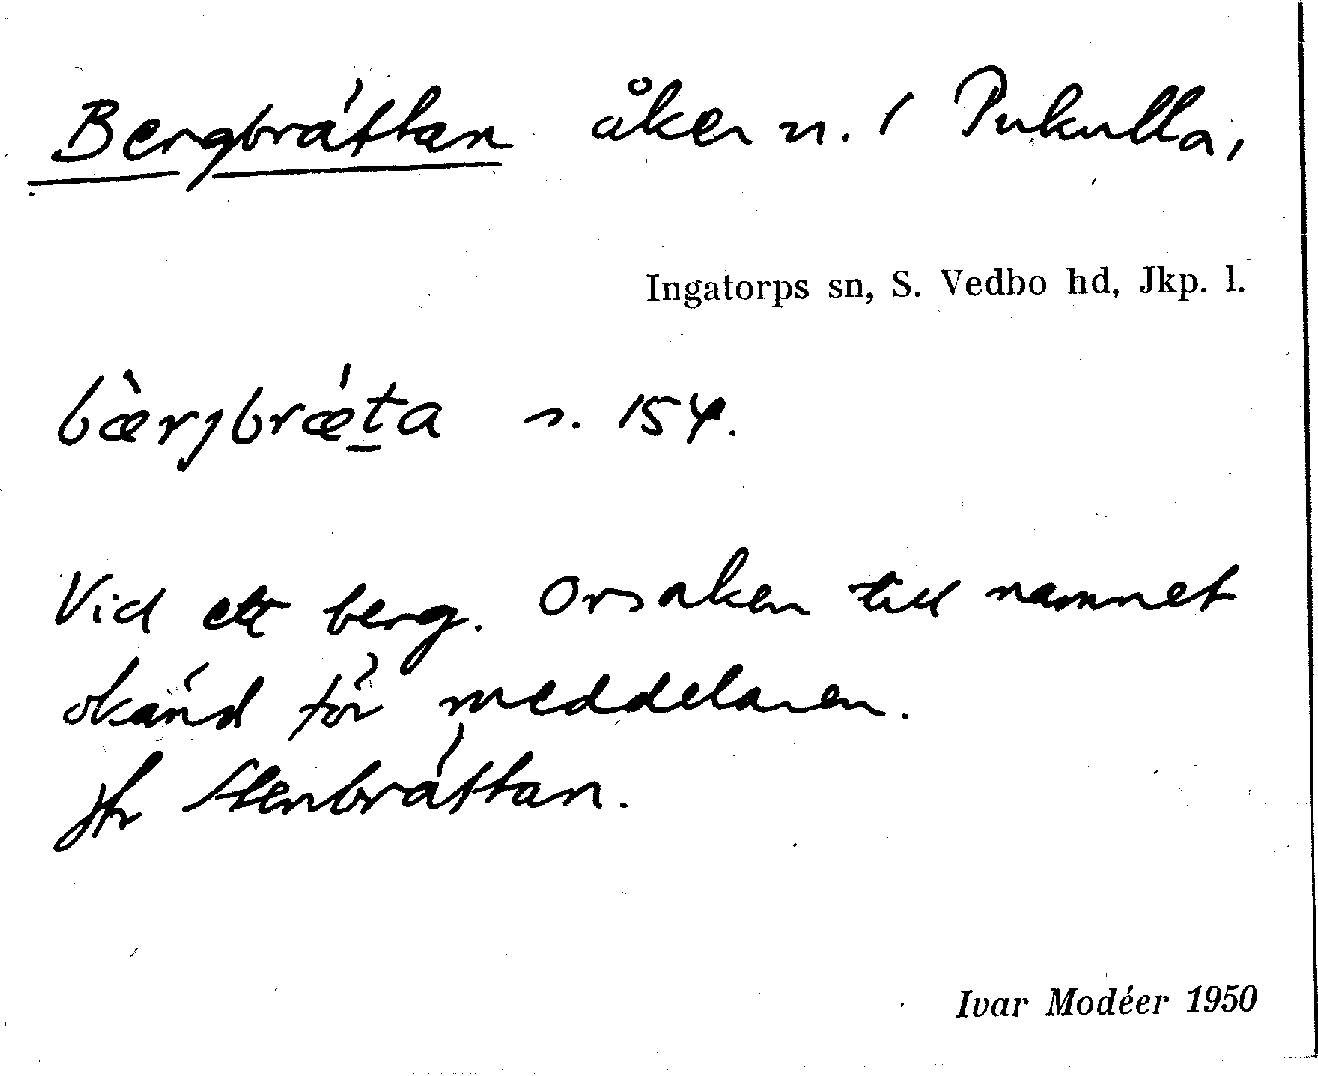 Bergbråttan åker n. i Pukulla,
Ingatorps sn, S. Vedbo hd, Jkp. l.
bæ̀rjbrǽṯa s. 154.
Vid ett berg. Orsaken till namnet
okänd för meddelaren.
Jfr Stenbråttan.
Ivar Modéer 1950